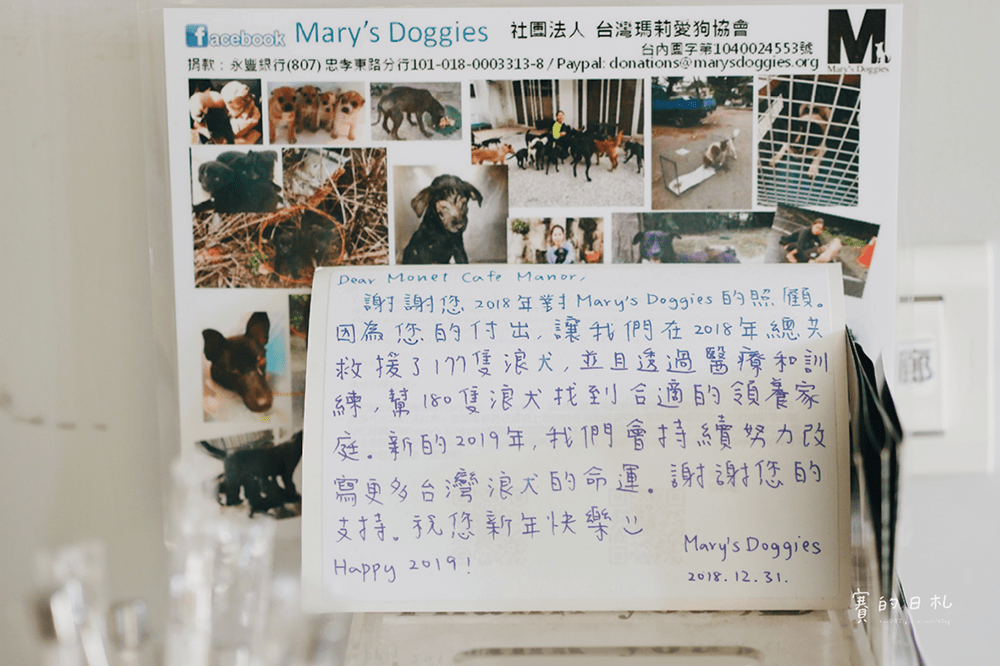 facebook Mary's Doggies 社團法人 台灣瑪莉愛狗協會
台內團字第1040024553號
捐款：永豐銀行(807) 忠孝東路分行101-018-0003313-8 / Paypal: donations@marysdoggies.org
M
Mary's Doggies
Dear Monet Cafe Manor,
謝謝您2018年對Mary's Doggies的照顧。
因為您的付出，讓我們在2018年總共
救援了177隻浪犬，並且透過醫療和訓
練，幫180隻浪犬找到合適的領養家
庭。新的2019年，我們會持續努力改
寫更多台灣浪犬的命運。謝謝您的
支持。祝您新年快樂
Happy 2019!
Mary's Doggies
2018.12.31.
賽的日札